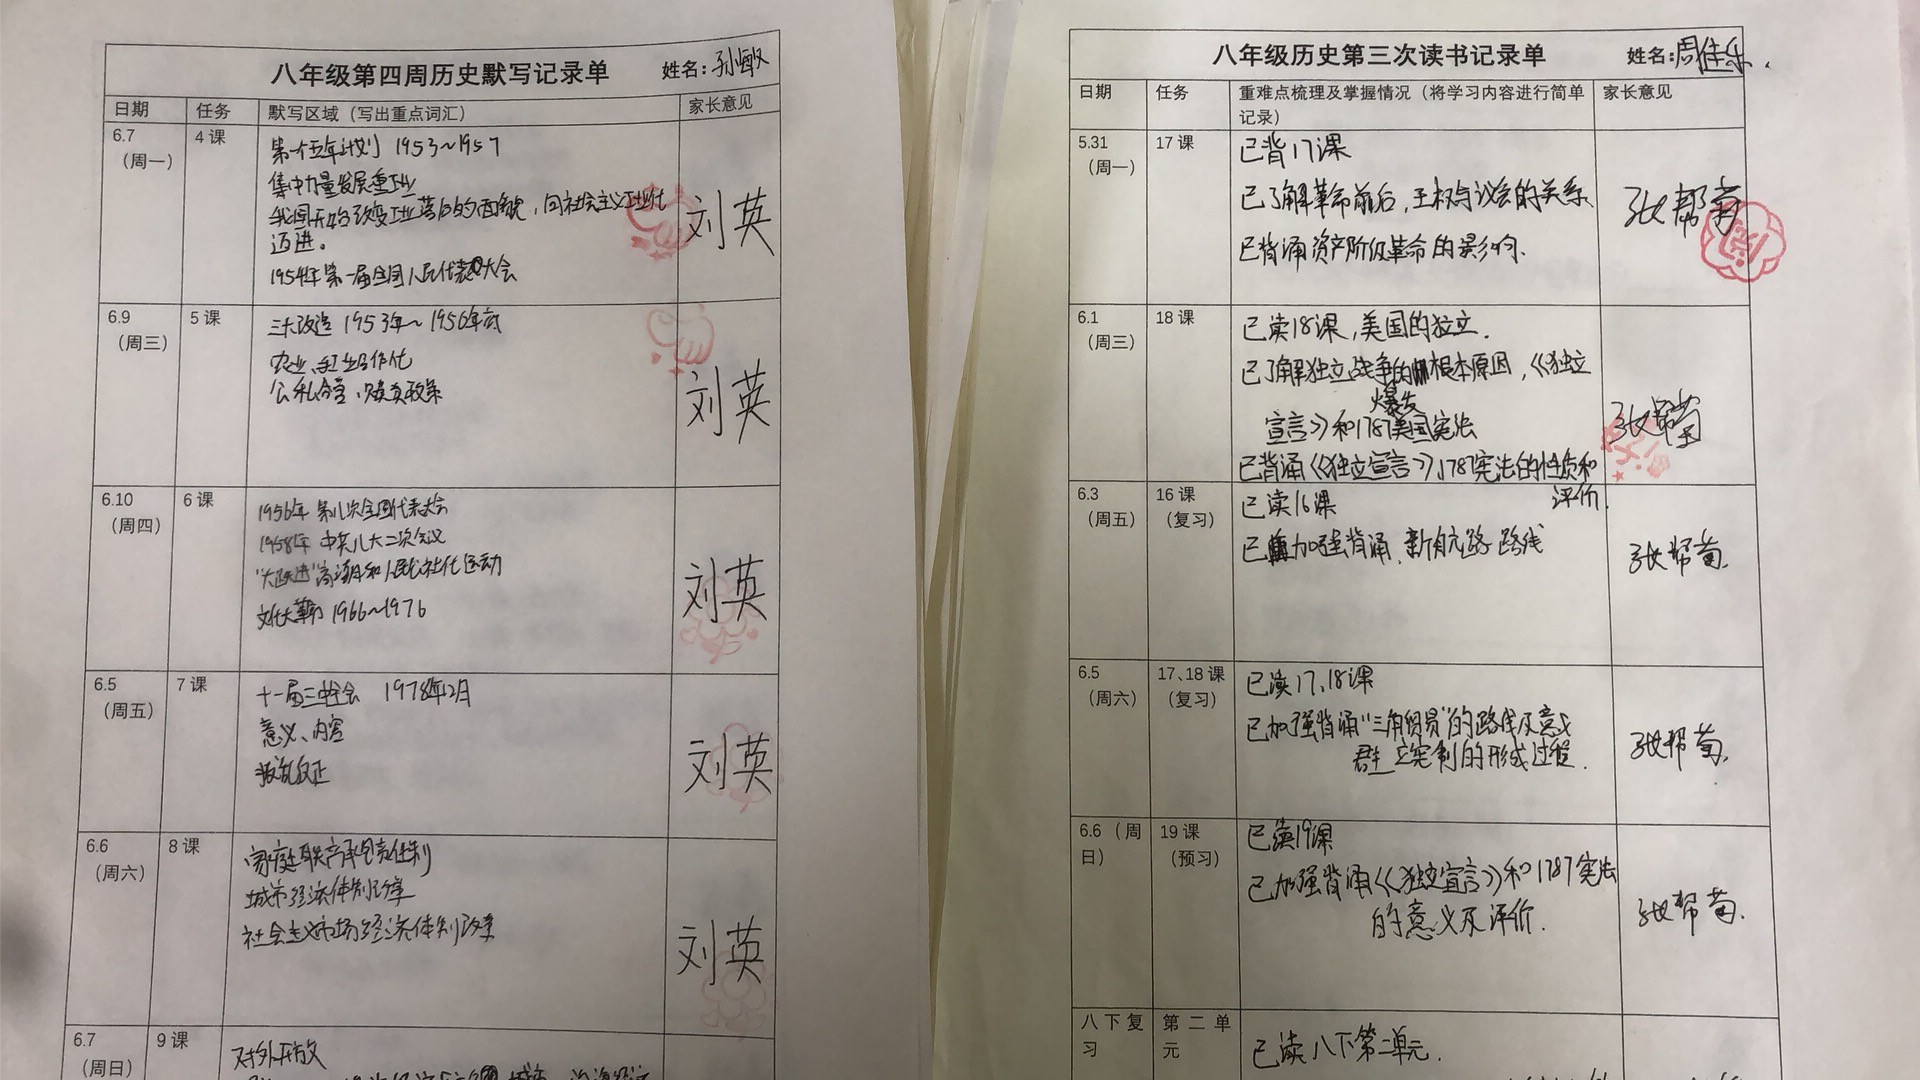 八年级第四周历史默写记录单 姓名:孙敏
日期 任务 默写区域（写出重点词汇） 家长意见
6.7 4 课 第一个五年计划 1953~1957
（周一）
集中力量发展重工业
我国开始改变工业落后的面貌，向社会主义工业化
迈进。
刘英
1954年第一届全国人民代表大会
6.9 5 课 三大改造 1953年~1956年底
（周三）
农业、手工业合作化
公私合营、赎买政策
刘英
6.10 6 课 1956年 第八次全国代表大会
（周四）
1958年 中共八大二次会议
"大跃进"高潮和人民公社化运动
刘英
文化大革命 1966~1976
6.5 7 课 十一届三中全会 1978年12月
（周五）
意义、内容
拨乱反正
刘英
6.6 8 课 家庭联产承包责任制
（周六）
城市经济体制改革
社会主义市场经济体制改革
刘英
6.7 9 课 对外开放
（周日）
八年级历史第三次读书记录单 姓名:周佳乐.
日期 任务 重难点梳理及掌握情况（将学习内容进行简单 家长意见
记录）
5.31 17 课 已背17课
（周一）
已了解革命前后，王权与议会的关系.
张帮菊
已背诵资产阶级革命的影响.
6.1 18 课 已读18课，美国的独立.
（周三）
已了解独立战争的根本原因，《独立
爆发
宣言》和1787美国宪法
张帮菊
已背诵《独立宣言》1787宪法的性质和
评价.
6.3 16 课 已读16课
（周五） （复习）
已加强背诵 新航路 路线
张帮菊.
6.5 17、18 课 已读17、18课
（周六） （复习）
已加强背诵"三角贸易"的路线及意义
群主立宪制的形成过程.
张帮菊.
6.6（周 19 课 已读19课
日） （预习）
已加强背诵《独立宣言》和1787宪法
的意义及评价.
张帮菊.
八下复 第二单
习 元 已读八下第二单元.